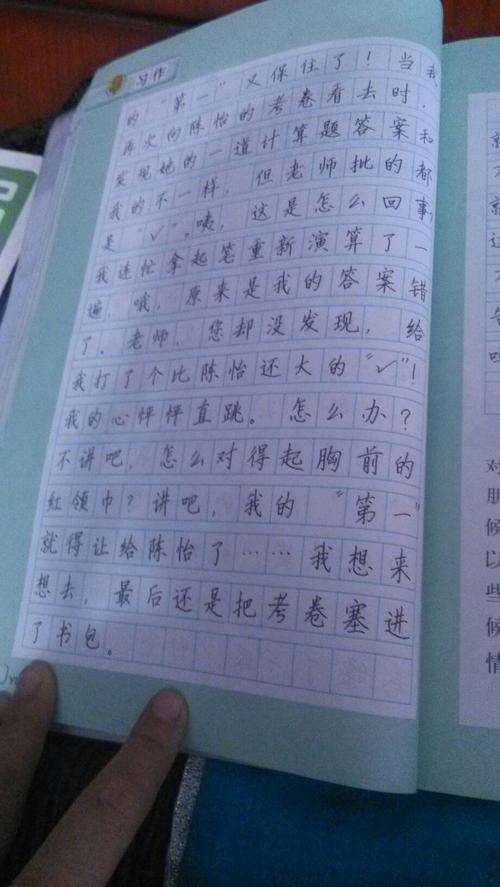 习作
的“第一”又保住了！当我
再次向陈怡的考卷看去时，
发现她的一道计算题答案和
我的不一样，但老师批的都
是“✓”。咦，这是怎么回事，
我连忙拿起笔重新演算了一
遍，哦，原来是我的答案错
了。老师，您却没发现，给
我打了个比陈怡还大的“✓”！
我的心怦怦直跳。怎么办？
不讲吧，怎么对得起胸前的
红领巾？讲吧，我的“第一”
就得让给陈怡了……我想来
想去，最后还是把考卷塞进
了书包。
对
朋
候
以
些
候
情